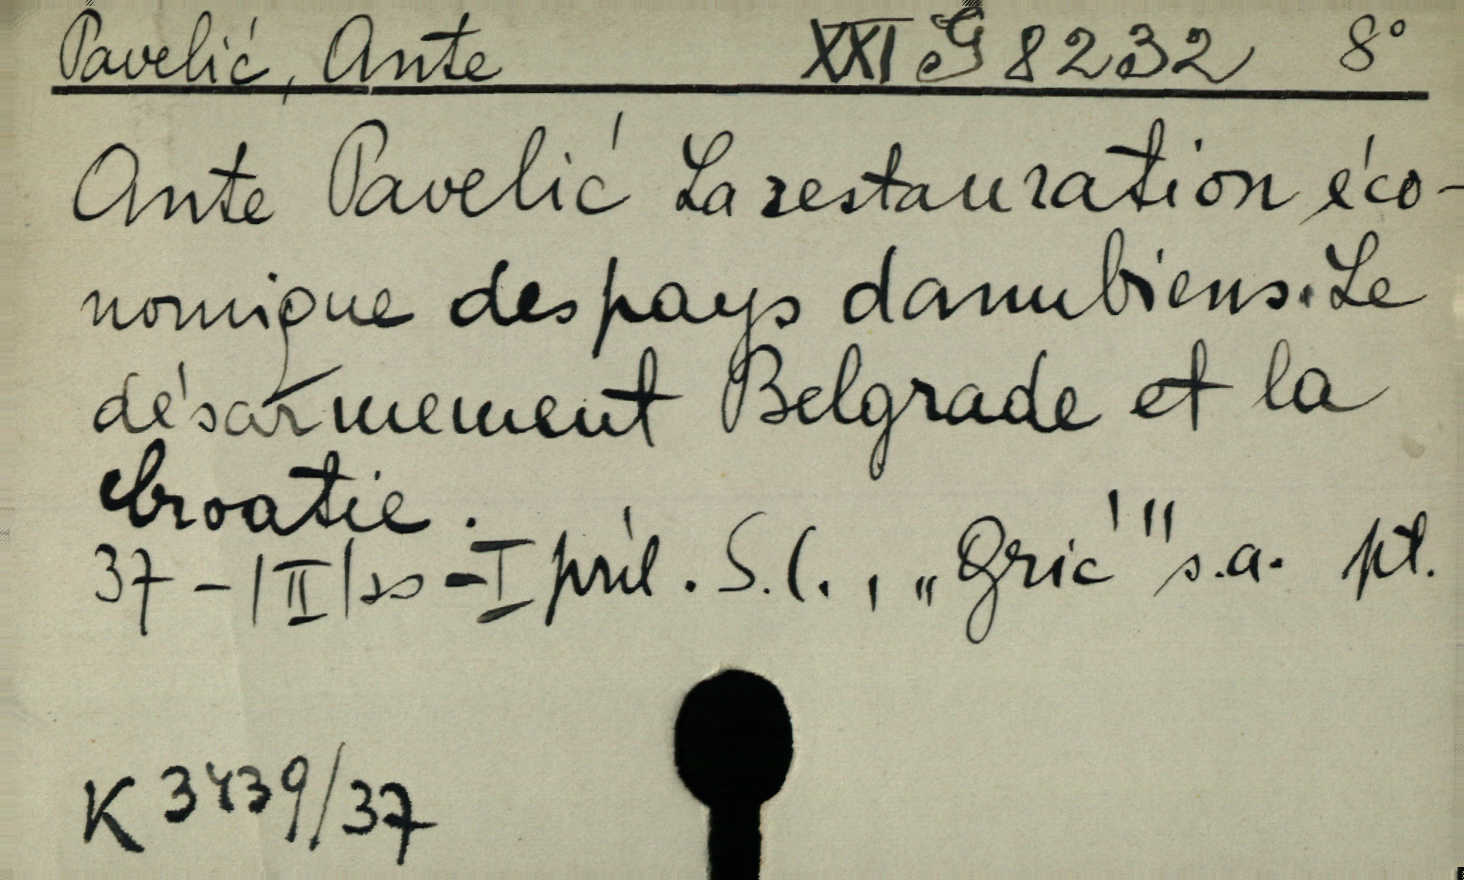 Pavelić, Ante XXI G 8232 8°
Ante Pavelić La restauration éco-
nomique des pays danubiens. Le
désarmement Belgrade et la
Croatie.
37 - |II| ss - I pril. S.l., „Grič" s.a. pt.
K 3439/37